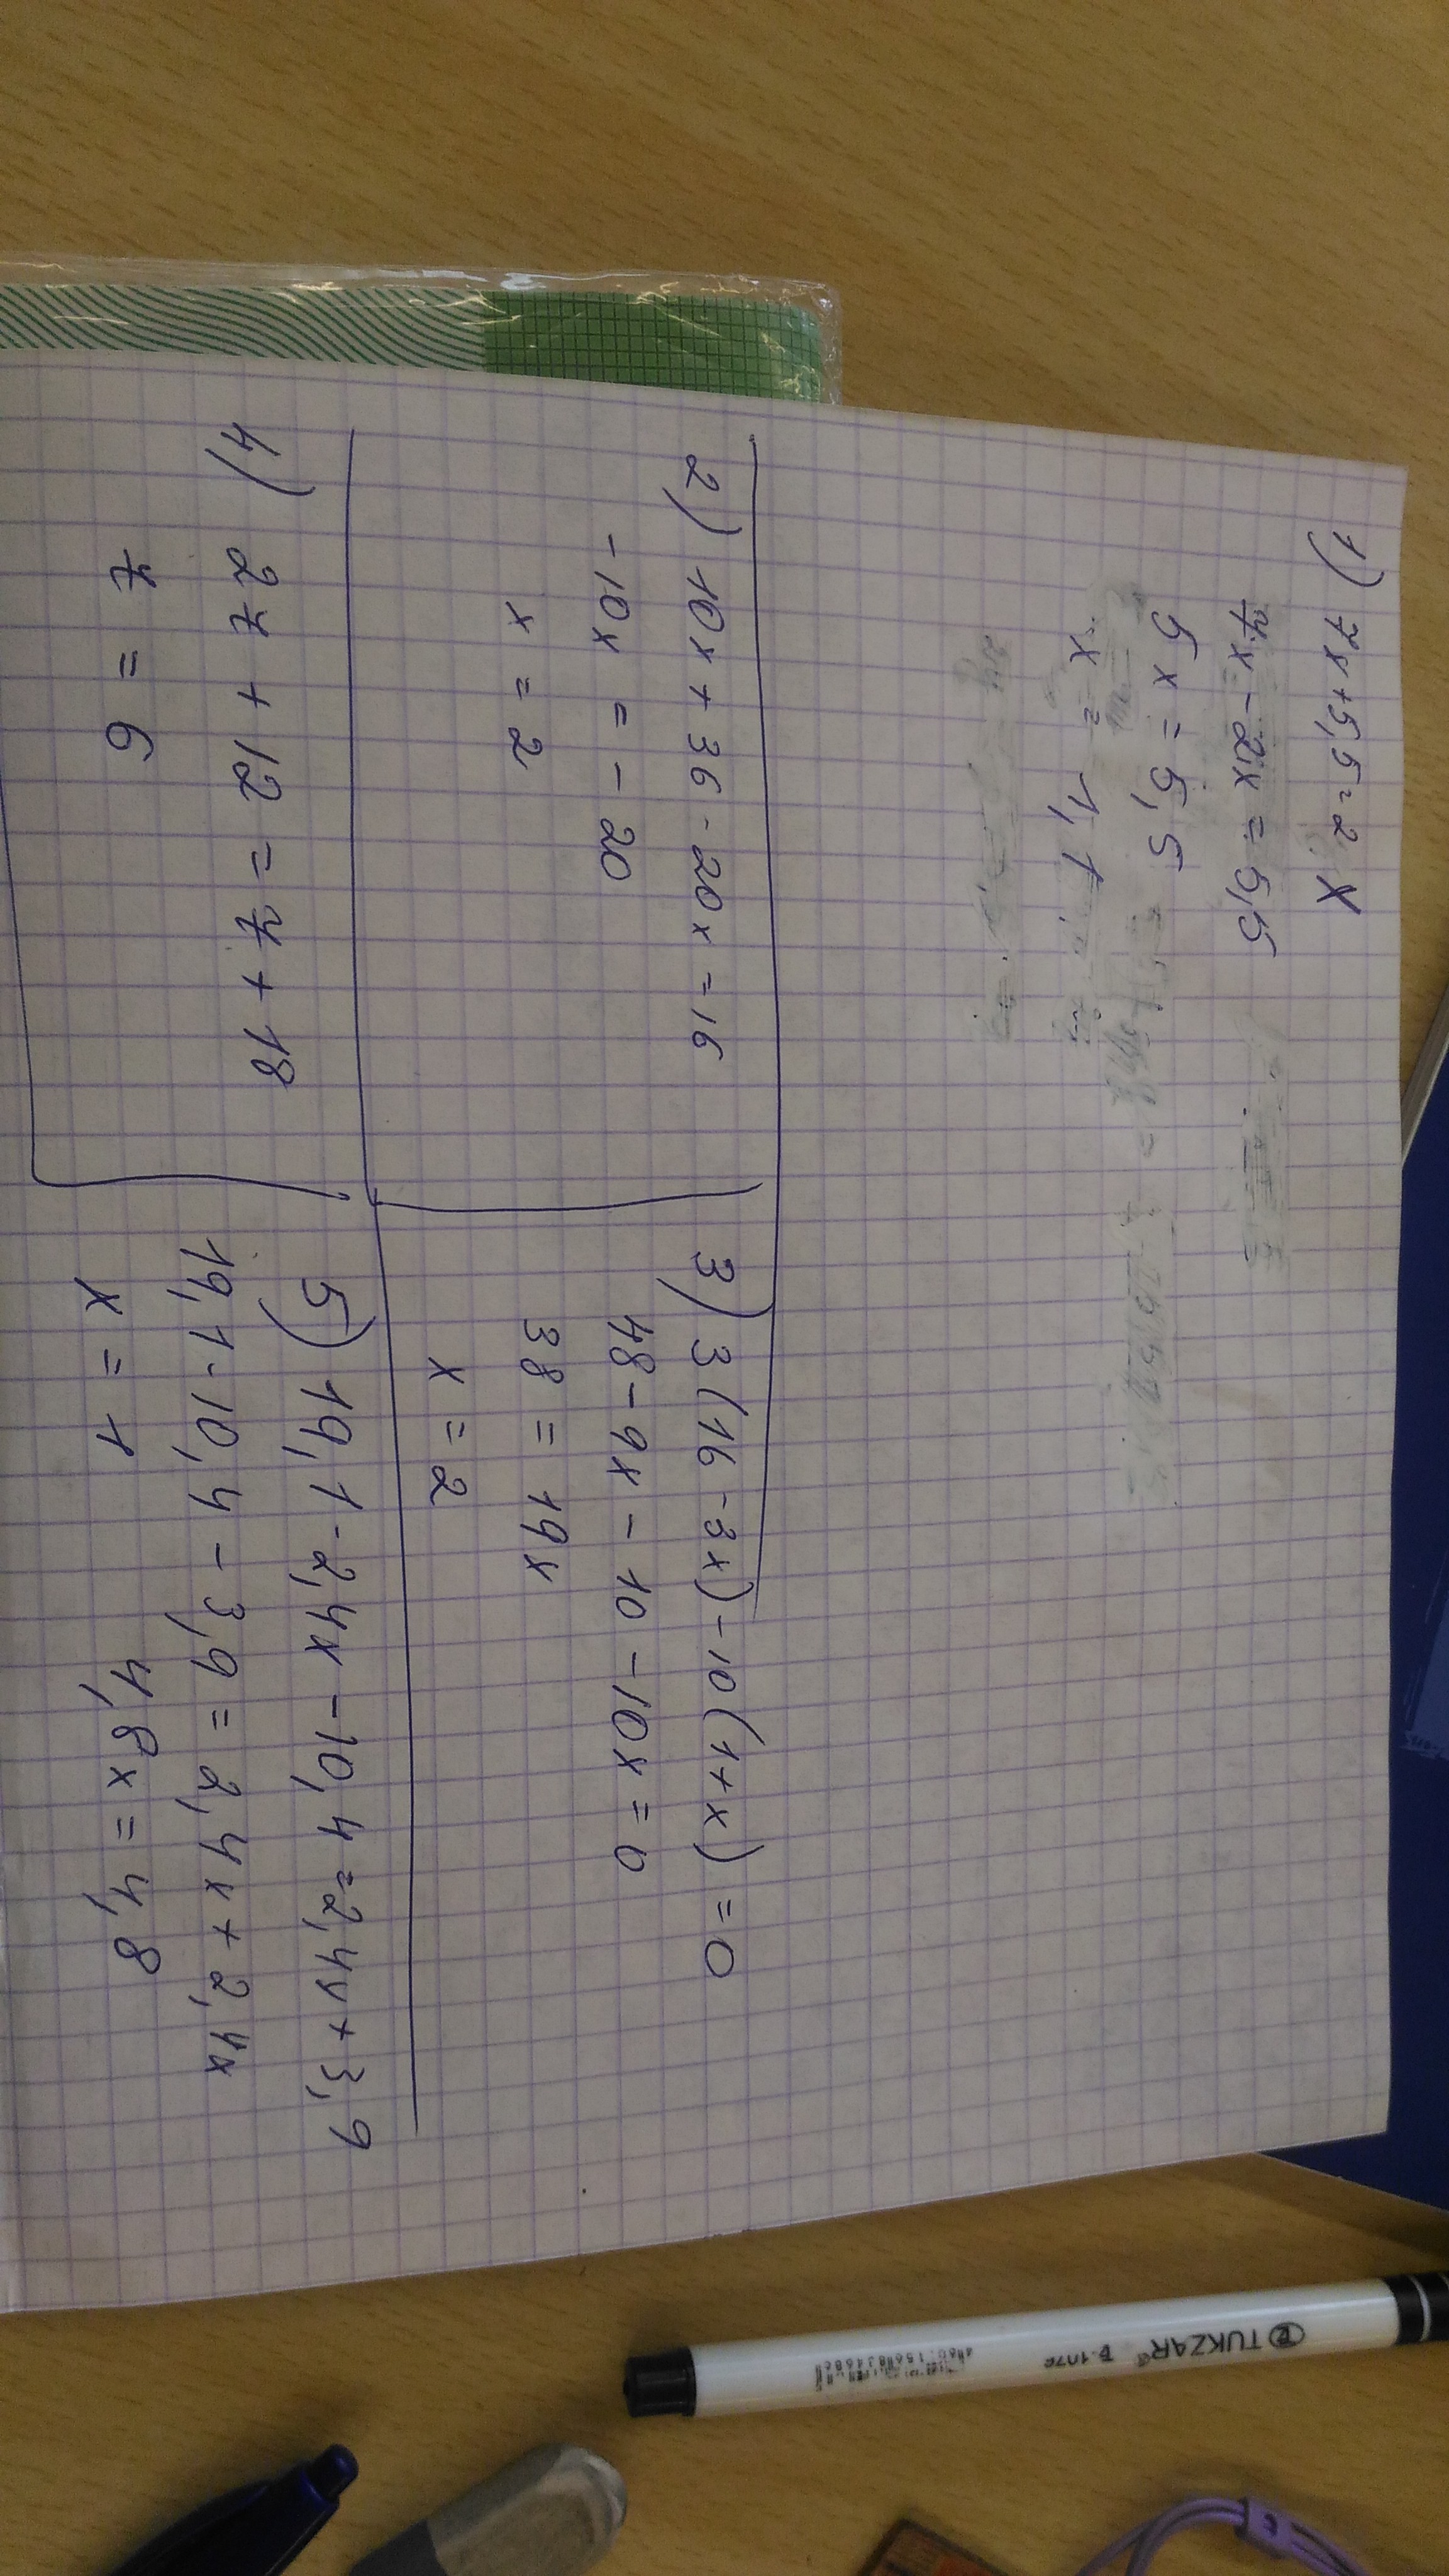 1) 7x+5,5=2x
7x-2x=5,5
5x=5,5
x=1,1
2) 10x+36-20x=16
-10x=-20
x=2
3) 3(16-3x)-10(1+x)=0
48-9x-10-10x=0
38=19x
x=2
4) 2z+12=z+18
z=6
5) 19,1-2,4x-10,4=2,4x+3,9
19,1-10,4-3,9=2,4x+2,4x
4,8x=4,8
x=1
TUKZAR